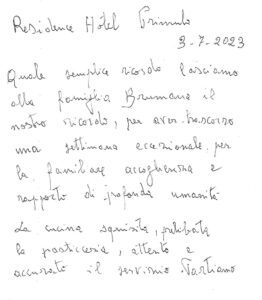 Residence Hotel Primula
3-7-2023
Quale semplice ricordo lasciamo
alla famiglia Brumana il
nostro ricordo, per aver trascorso
una settimana eccezionale per
la familiare accoglienza e
rapporto di profonda umanità
La cucina squisita, prelibata
la pasticceria, attento e
accurato il servizio Partiamo